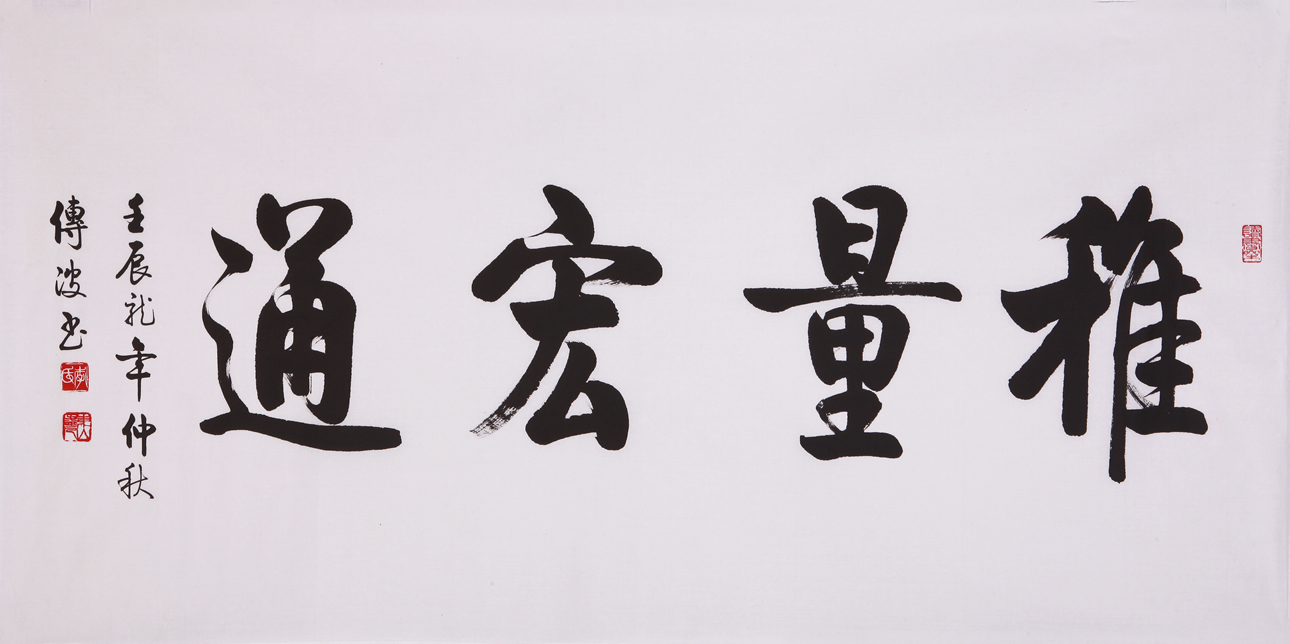 雅量宏通
壬辰龙年仲秋
傳波书